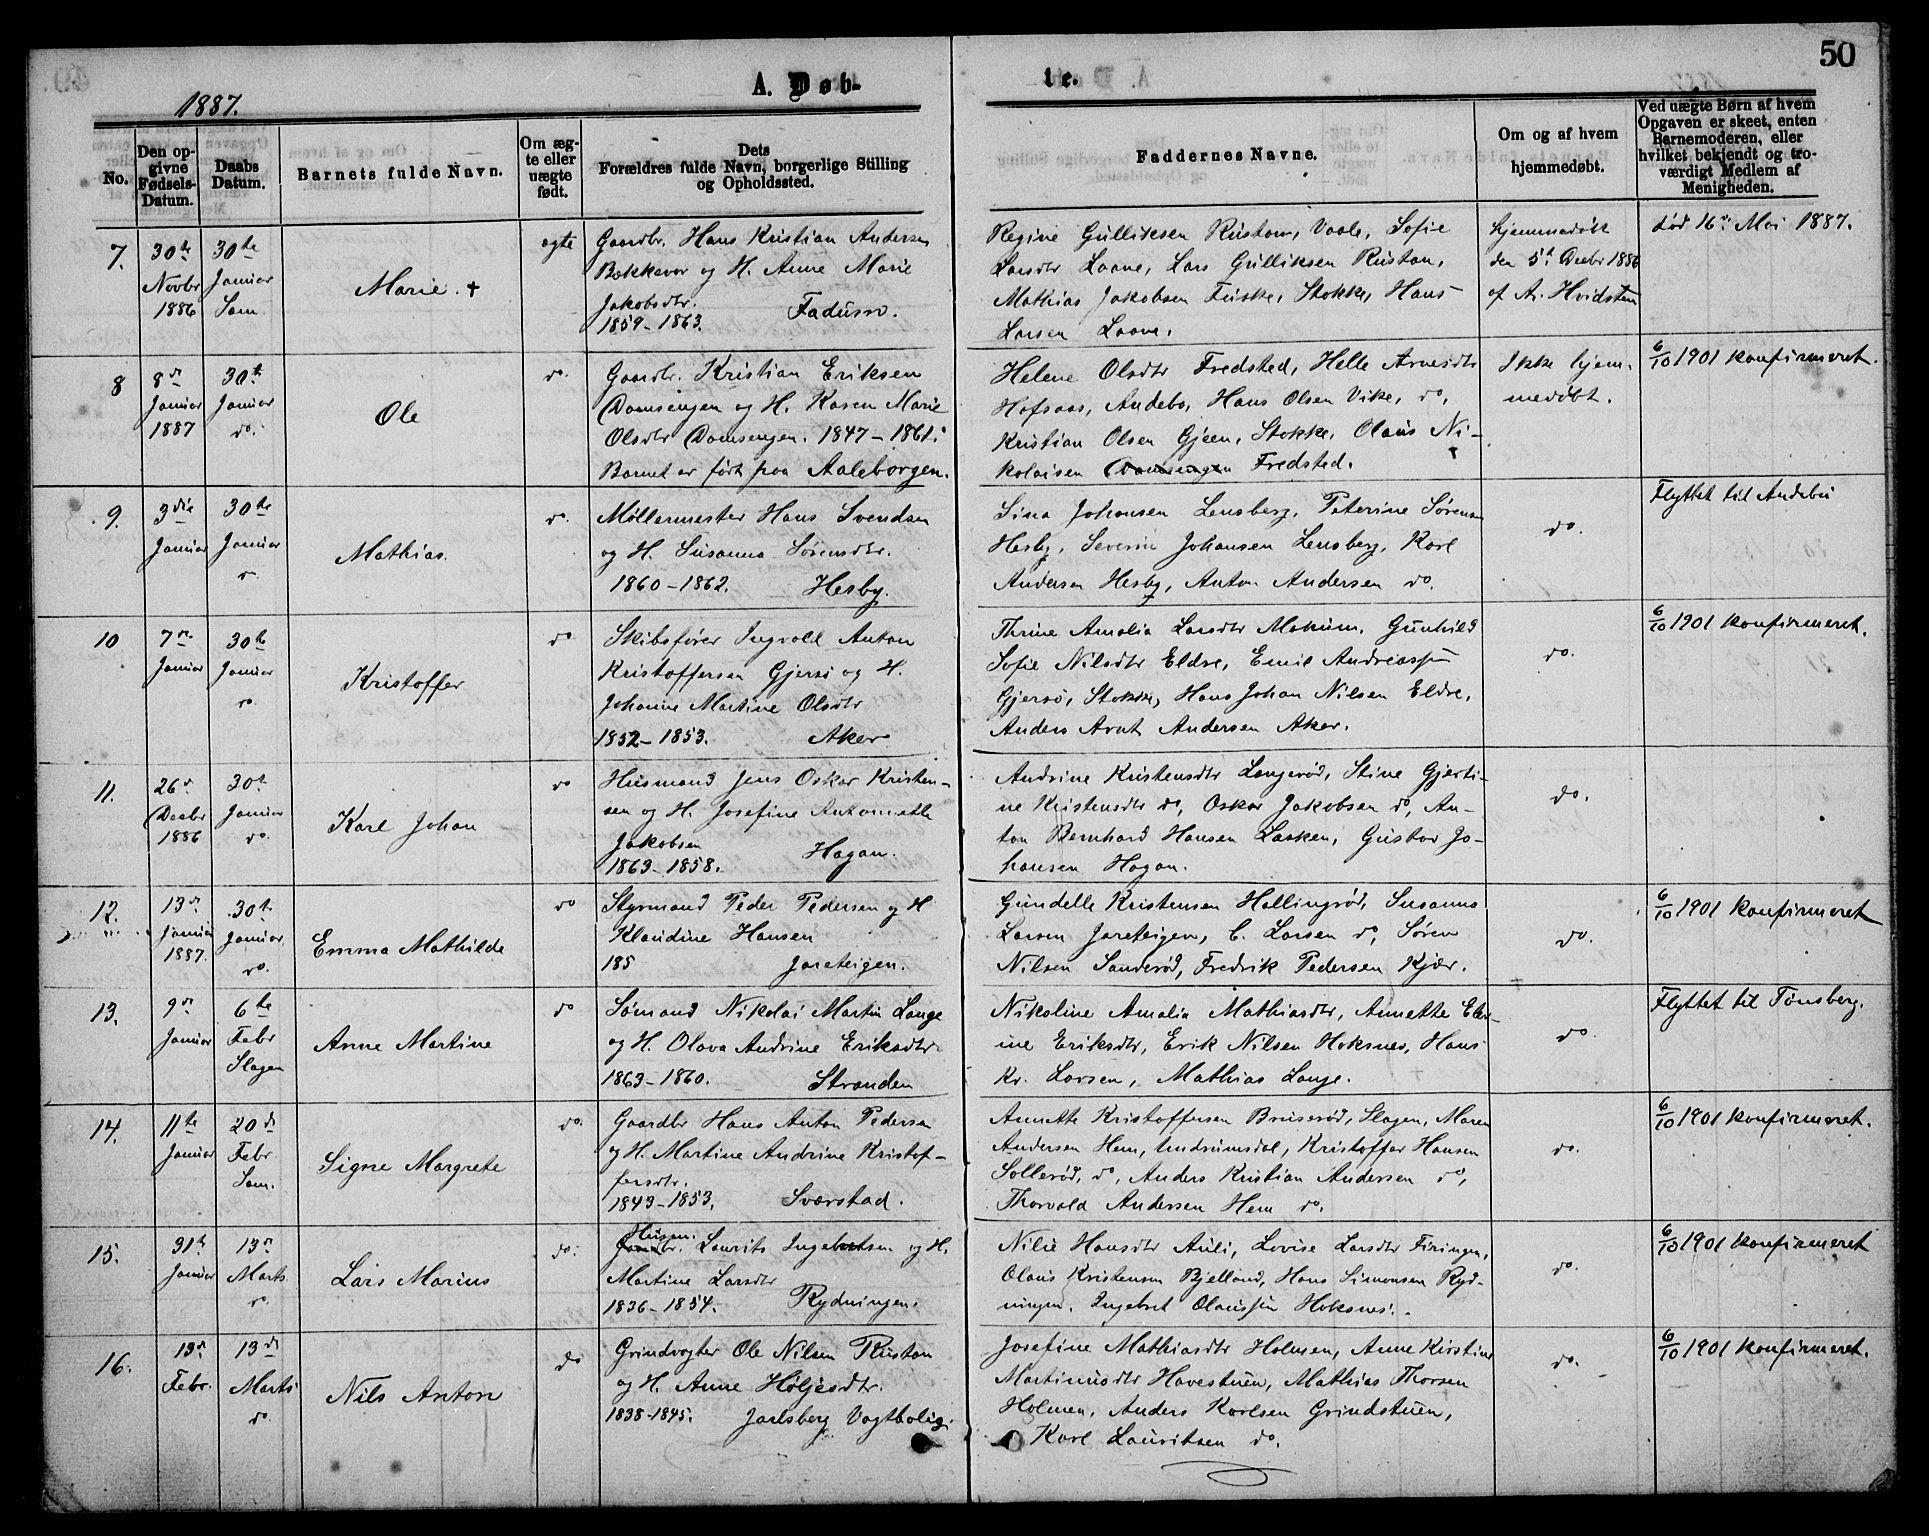 50
1887.
A. Døb-
te.
No.
Den op-
givne
Fødsels-
Datum.
Daabs
Datum.
Barnets fulde Navn.
Om æg-
te eller
uægte
født.
Dets
Forældres fulde Navn, borgerlige Stilling
og Opholdssted.
Faddernes Navne.
Om og af hvem
hjemmedøbt.
Ved uægte Børn af hvem
Opgaven er skeet, enten
Barnemoderen, eller
hvilket bekjendt og tro-
værdigt Medlem af
Menigheden.
7.
30te
Novbr
1886
30te
Januar
Sem.
Marie. +
ægte
Gaardbr. Hans Kristian Andersen
Bækkevar og H. Anne Marie
Jakobsdtr.
1859-1863. Fadum.
Regine Gulliksen Rustan, Vaale, Sofie
Larsdtr Laane, Lars Gulliksen Rustan,
Mathias Jakobsen Fuske, Stokke, Hans
Larsen Laane.
hjemmedøbt
den 5t. Decbr 1886
af A. Hvidsten
død 16de Mai 1887.
8
8de
Januar
1887
30te
Januar
do.
Ole
do.
Gaardbr. Kristian Eriksen
Damsengen og H. Karen Marie
Olsdtr Damsengen. 1847-1861.
Barnet er født paa Aaleborgen.
Helene Olsdtr Fredsted, Helle Arnesdtr
Hofsaas, Andebo, Hans Olsen Vike, do,
Kristian Olsen Gjeen, Stokke, Olaus Ni-
kolaisen Damsengen Fredsted.
Ikke hjem-
medøbt.
6/10 1901 konfirmeret.
9.
3die
Januar
30te
Januar
do.
Mathias.
do.
Møllermester Hans Svendsen
og H. Susanna Sørensdtr.
1860-1862. Hesby.
Sina Johansen Lensberg, Peterine Sørensen
Hesby, Severin Johansen Lensberg, Karl
Andersen Hesby, Anton Andersen do.
do.
Flyttet til Andebu
10
7de
Januar
30te
Januar
do.
Kristoffer
do
Skibsfører Ingvald Anton
Kristoffersen Gjersø og H.
Johanne Martine Olsdtr
1852-1853. Aker
Thrine Amalia Larsdtr Makum, Gunhild
Sofie Nilsdtr Eldre, Emil Andreassen
Gjersø, Stokke, Hans Johan Nilsen Eldre,
Anders Arnt Andersen Aker.
do.
6/10 1901 konfirmeret.
11.
26de
Decbr
1886
30te
Januar
do.
Karl Johan
do
Husmand Jens Oskar Kristen-
sen og H. Josefine Antonette
Jakobsen
1863-1858. Hagan.
Andrine Kristensdtr Langerød, Stine Gjerti-
ne Kristensdtr do, Oskar Jakobsen do, An-
ton Bernhard Hansen Lasken, Gustav Jo-
hansen Hagan.
do.
12.
13de
Januar
1887.
30te
Januar.
do.
Emma Mathilde
do
Styrmand Peder Pedersen og H
Klaudine Hansen
185 Jareteigen.
Gundelle Kristensen Hallingrød, Susanna
Larsen Jareteigen, C. Larsen do, Søren
Nilsen Sanderød, Fredrik Pedersen Kjær.
do.
6/10 1901 konfirmeret
13.
9de
Januar
6te
Febr
Slagen
Anne Martine
do
Sømand Nikolai Martin Lange
og H. Olava Andrine Eriksdtr
1863-1860. Stranden
Nikoline Amalia Mathiasdtr, Annette Elen-
ine Eriksdtr, Erik Nilsen Hoksnes, Hans
Kr. Larsen, Mathias Lange.
do
Flyttet til Tønsberg.
14.
11te
Januar
20de
Febr
Sem.
Signe Margrete
do.
Gaardbr Hans Anton Pedersen
og H. Martine Andrine Kristof-
fersdtr.
1843-1853. Sværstad.
Annette Kristoffersen Bruserød, Slagen, Maren
Andersen Hem, Undrumsdal, Kristoffer Hansen
Sollerød, do, Anders Kristian Andersen do,
Thorvald Andersen Hem do.
do.
6/10 1901 konfirmeret.
15.
31te
Januar
13de
Marts
do.
Lars Marius
do.
Husm.
Gaardbr. Laurits Ingebretsen og H.
Martine Larsdtr
1836-1854. Rydningen.
Nilie Hansdtr Auli, Lovise Larsdtr Firingen,
Olaus Kristensen Bjelland, Hans Simonsen Ryd-
ningen. Ingebret Olaussen Hoksnes.
do.
6/10 1901 konfirmeret
16.
13de
Febr.
13de
Marts
do.
Nils Anton
do
Grindvogter Ole Nilsen Rustan
og H. Anne Holjesdtr.
1838-1845. Jarlsberg Vogtbolig.
Josefine Mathiasdtr Holmen, Anne Kirstine
Martinusdtr Havestuen, Mathias Thorsen
Holmen, Anders Karlsen Grindstuen,
Karl Lauritsen do.
do.
6/10 1901 konfirmeret.